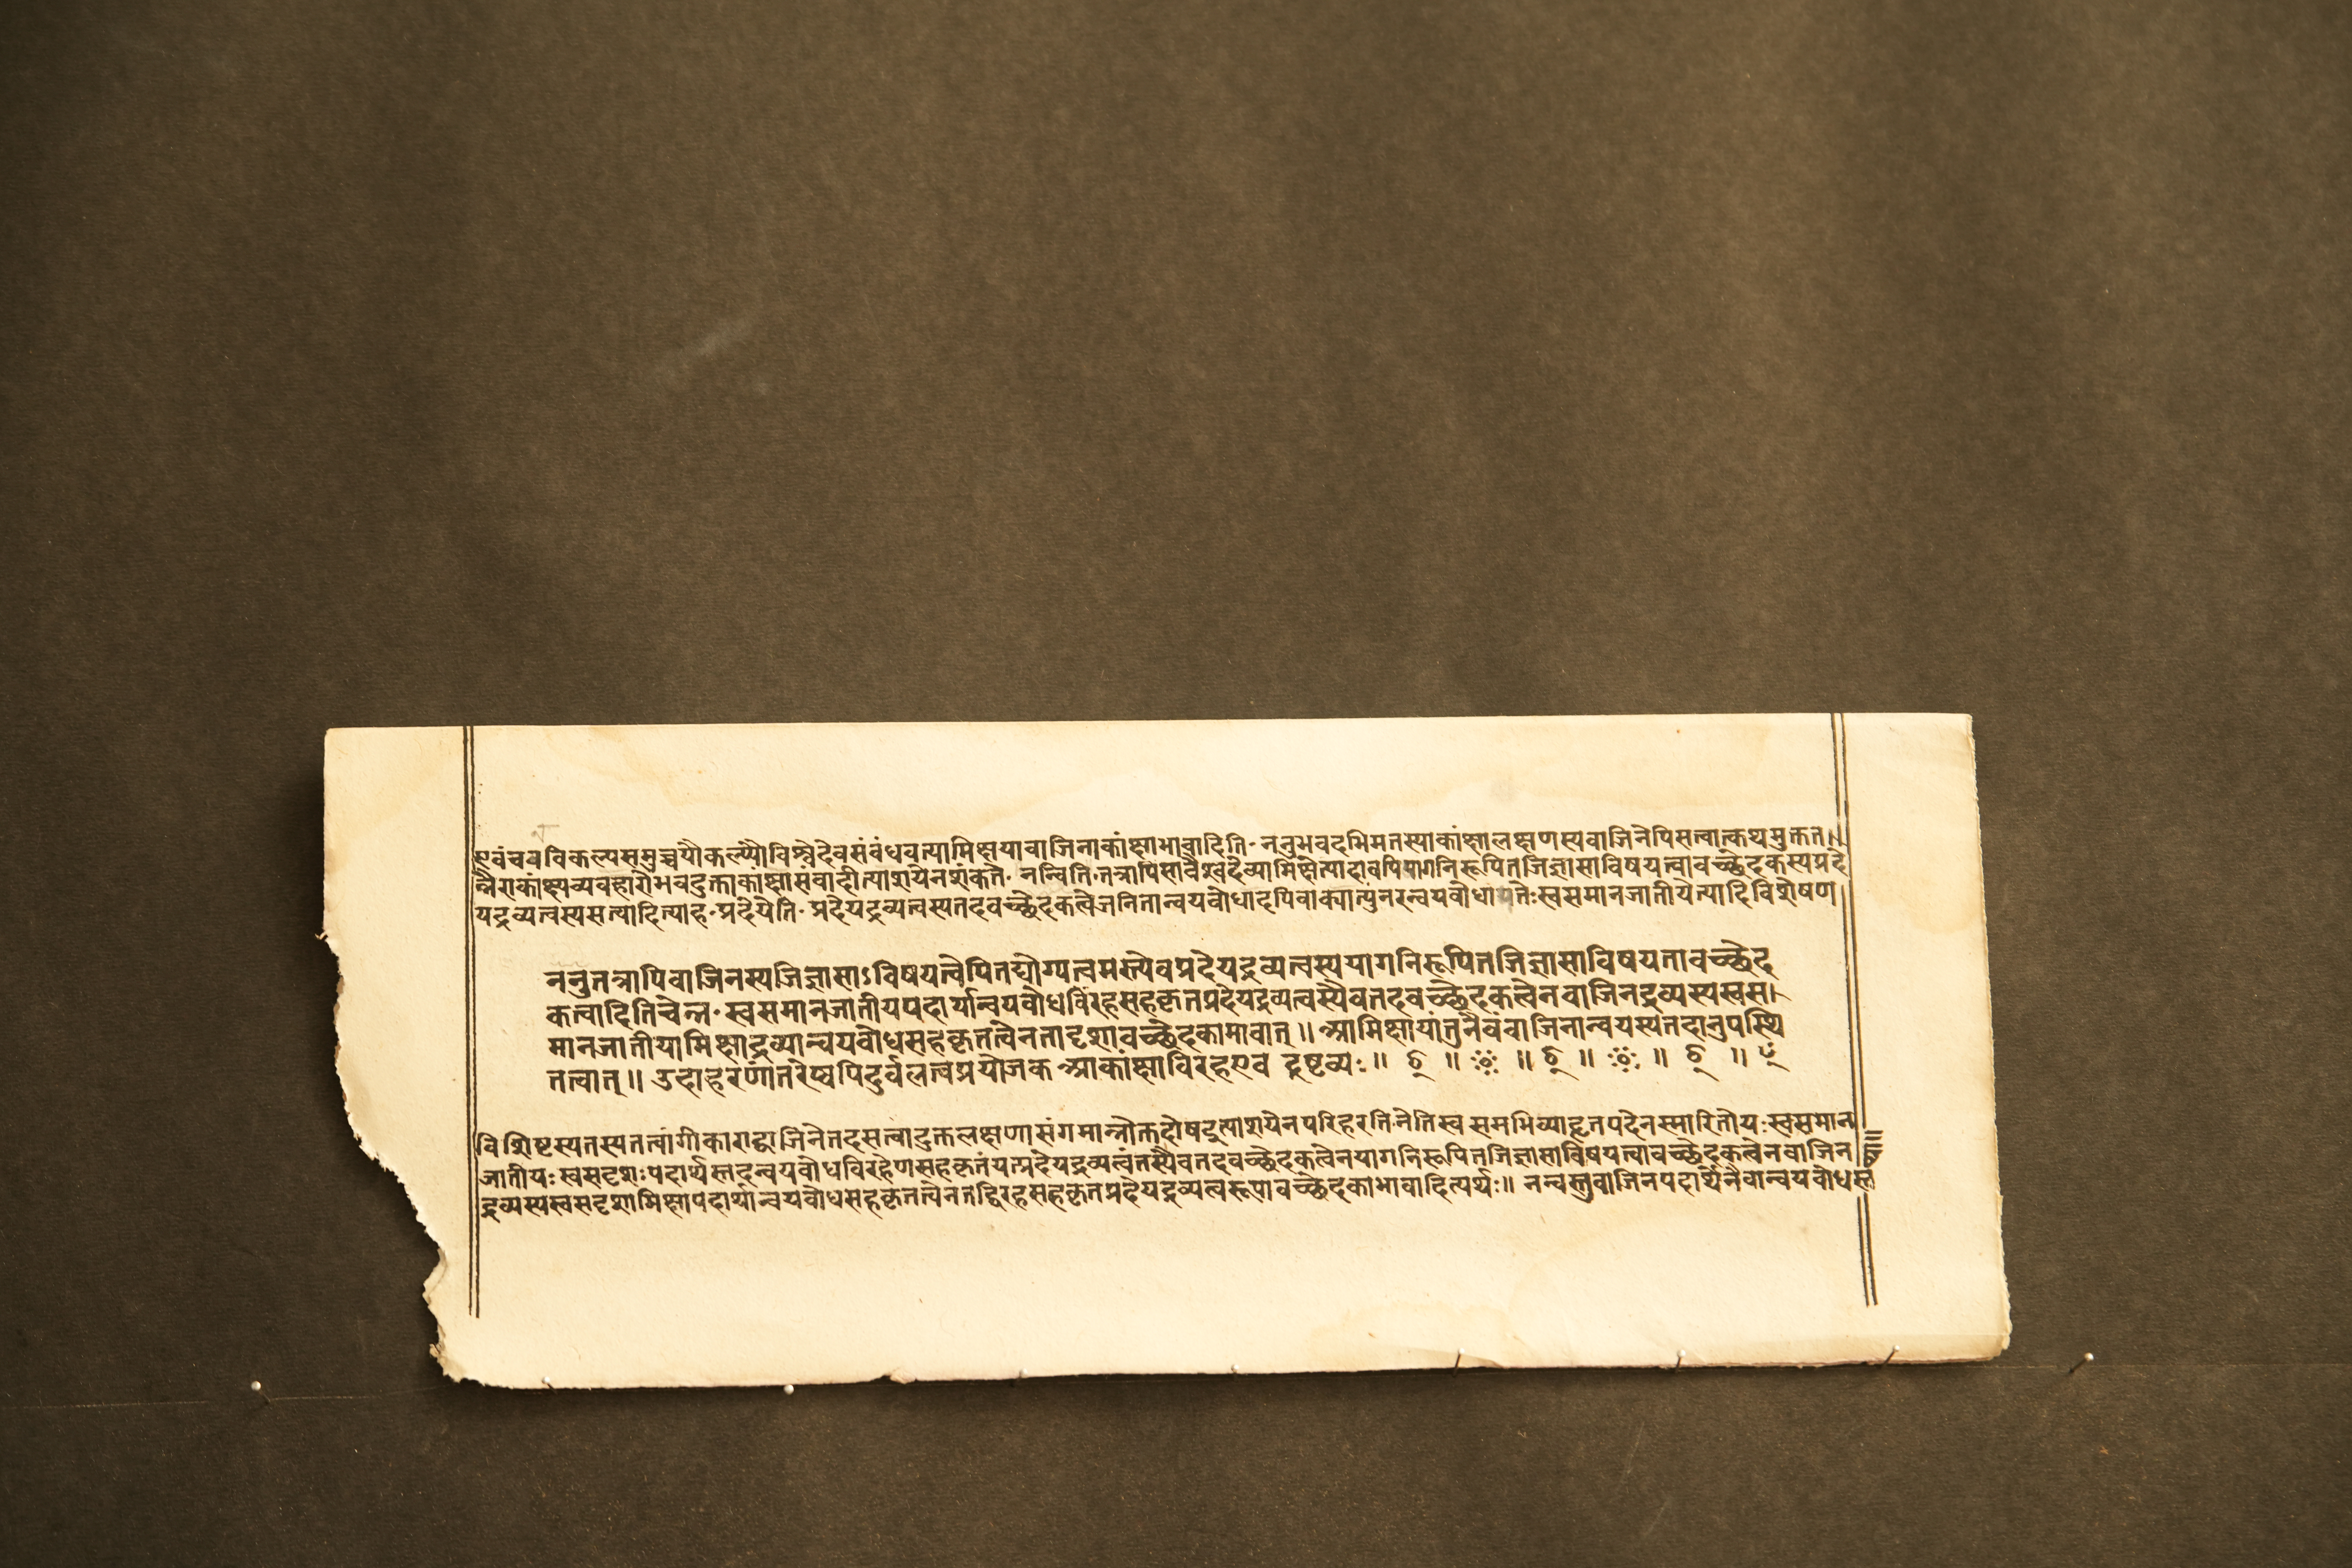 एवंचनविकल्पसमुच्चयौकल्प्यौविश्वेदेवसंबंधवत्यामिक्षयावाजिनाकांक्षाभावादिति॰ ननुभवदभिमतस्याकांक्षालक्षणस्यवाजिनेपिसत्वात्कथमुक्ततन्
न्नैराकांक्ष्यव्यवहारोभवदुक्ताकांक्षासंवादीत्याशयेनशंकते॰ नन्विति॰तत्रापिसावैश्वदेव्यामिक्षेत्यादावपियागनिरूपितजिज्ञासाविषयत्वावच्छेदकस्यप्रदे
यद्रव्यत्वस्यसत्वादित्याह॰प्रदेयेति॰ प्रदेयद्रव्यत्वस्यतदवच्छेदकत्वेजनितान्वयबोधादपिवाक्यात्पुनरन्वयबोधापत्तेःस्वसमानजातीयेत्यादिविशेषण
ननुतत्रापिवाजिनस्यजिज्ञासाऽविषयत्वेपितद्योग्यत्वमस्त्येवप्रदेयद्रव्यत्वस्ययागनिरूपितजिज्ञासाविषयतावच्छेद
कत्वादितिचेन्न॰ स्वसमानजातीयपदार्थान्वयबोधविरहसहकृतप्रदेयद्रव्यत्वस्यैवतदवच्छेदकत्वेनवाजिनद्रव्यस्यस्वस।
मानजातीयामिक्षाद्रव्यान्वयबोधसहकृतत्वेनतादृशावच्छेदकाभावात्॥ आमिक्षायांतुनैवंवाजिनान्वयस्यतदानुपस्थि
तत्वात्॥ उदाहरणांतरेष्वपिदुर्बलत्वप्रयोजकआकांक्षाविरहएव द्रष्टव्यः॥ छ् ॥ ॥ छ् ॥ ॥ छ् ॥
विशिष्टस्यतस्यतत्वांगीकाराद्वाजिनेतदसत्वादुक्तलक्षणासंगमान्नोक्तदोषइत्याशयेनपरिहरति॰नेतिस्व समभिव्याहृतपदेनस्मारितोयःस्वसमान
जातीयःस्वसदृशःपदार्थस्तदन्वयबोधविरहेणसहकृतंयत्प्रदेयद्रव्यत्वंतस्यैवतदवच्छेदकत्वेनयागनिरूपितजिज्ञासाविषयत्वावच्छेदकत्वेनवाजिन
द्रव्यस्यस्वसदृशामिक्षापदार्थान्वयबोधसहकृतत्वेनतद्विरहसहकृतप्रदेयद्रव्यत्वरूपावच्छेदकाभावादित्यर्थः॥ नन्वस्तुवाजिनपदार्थेनैवान्वयबोधस्त